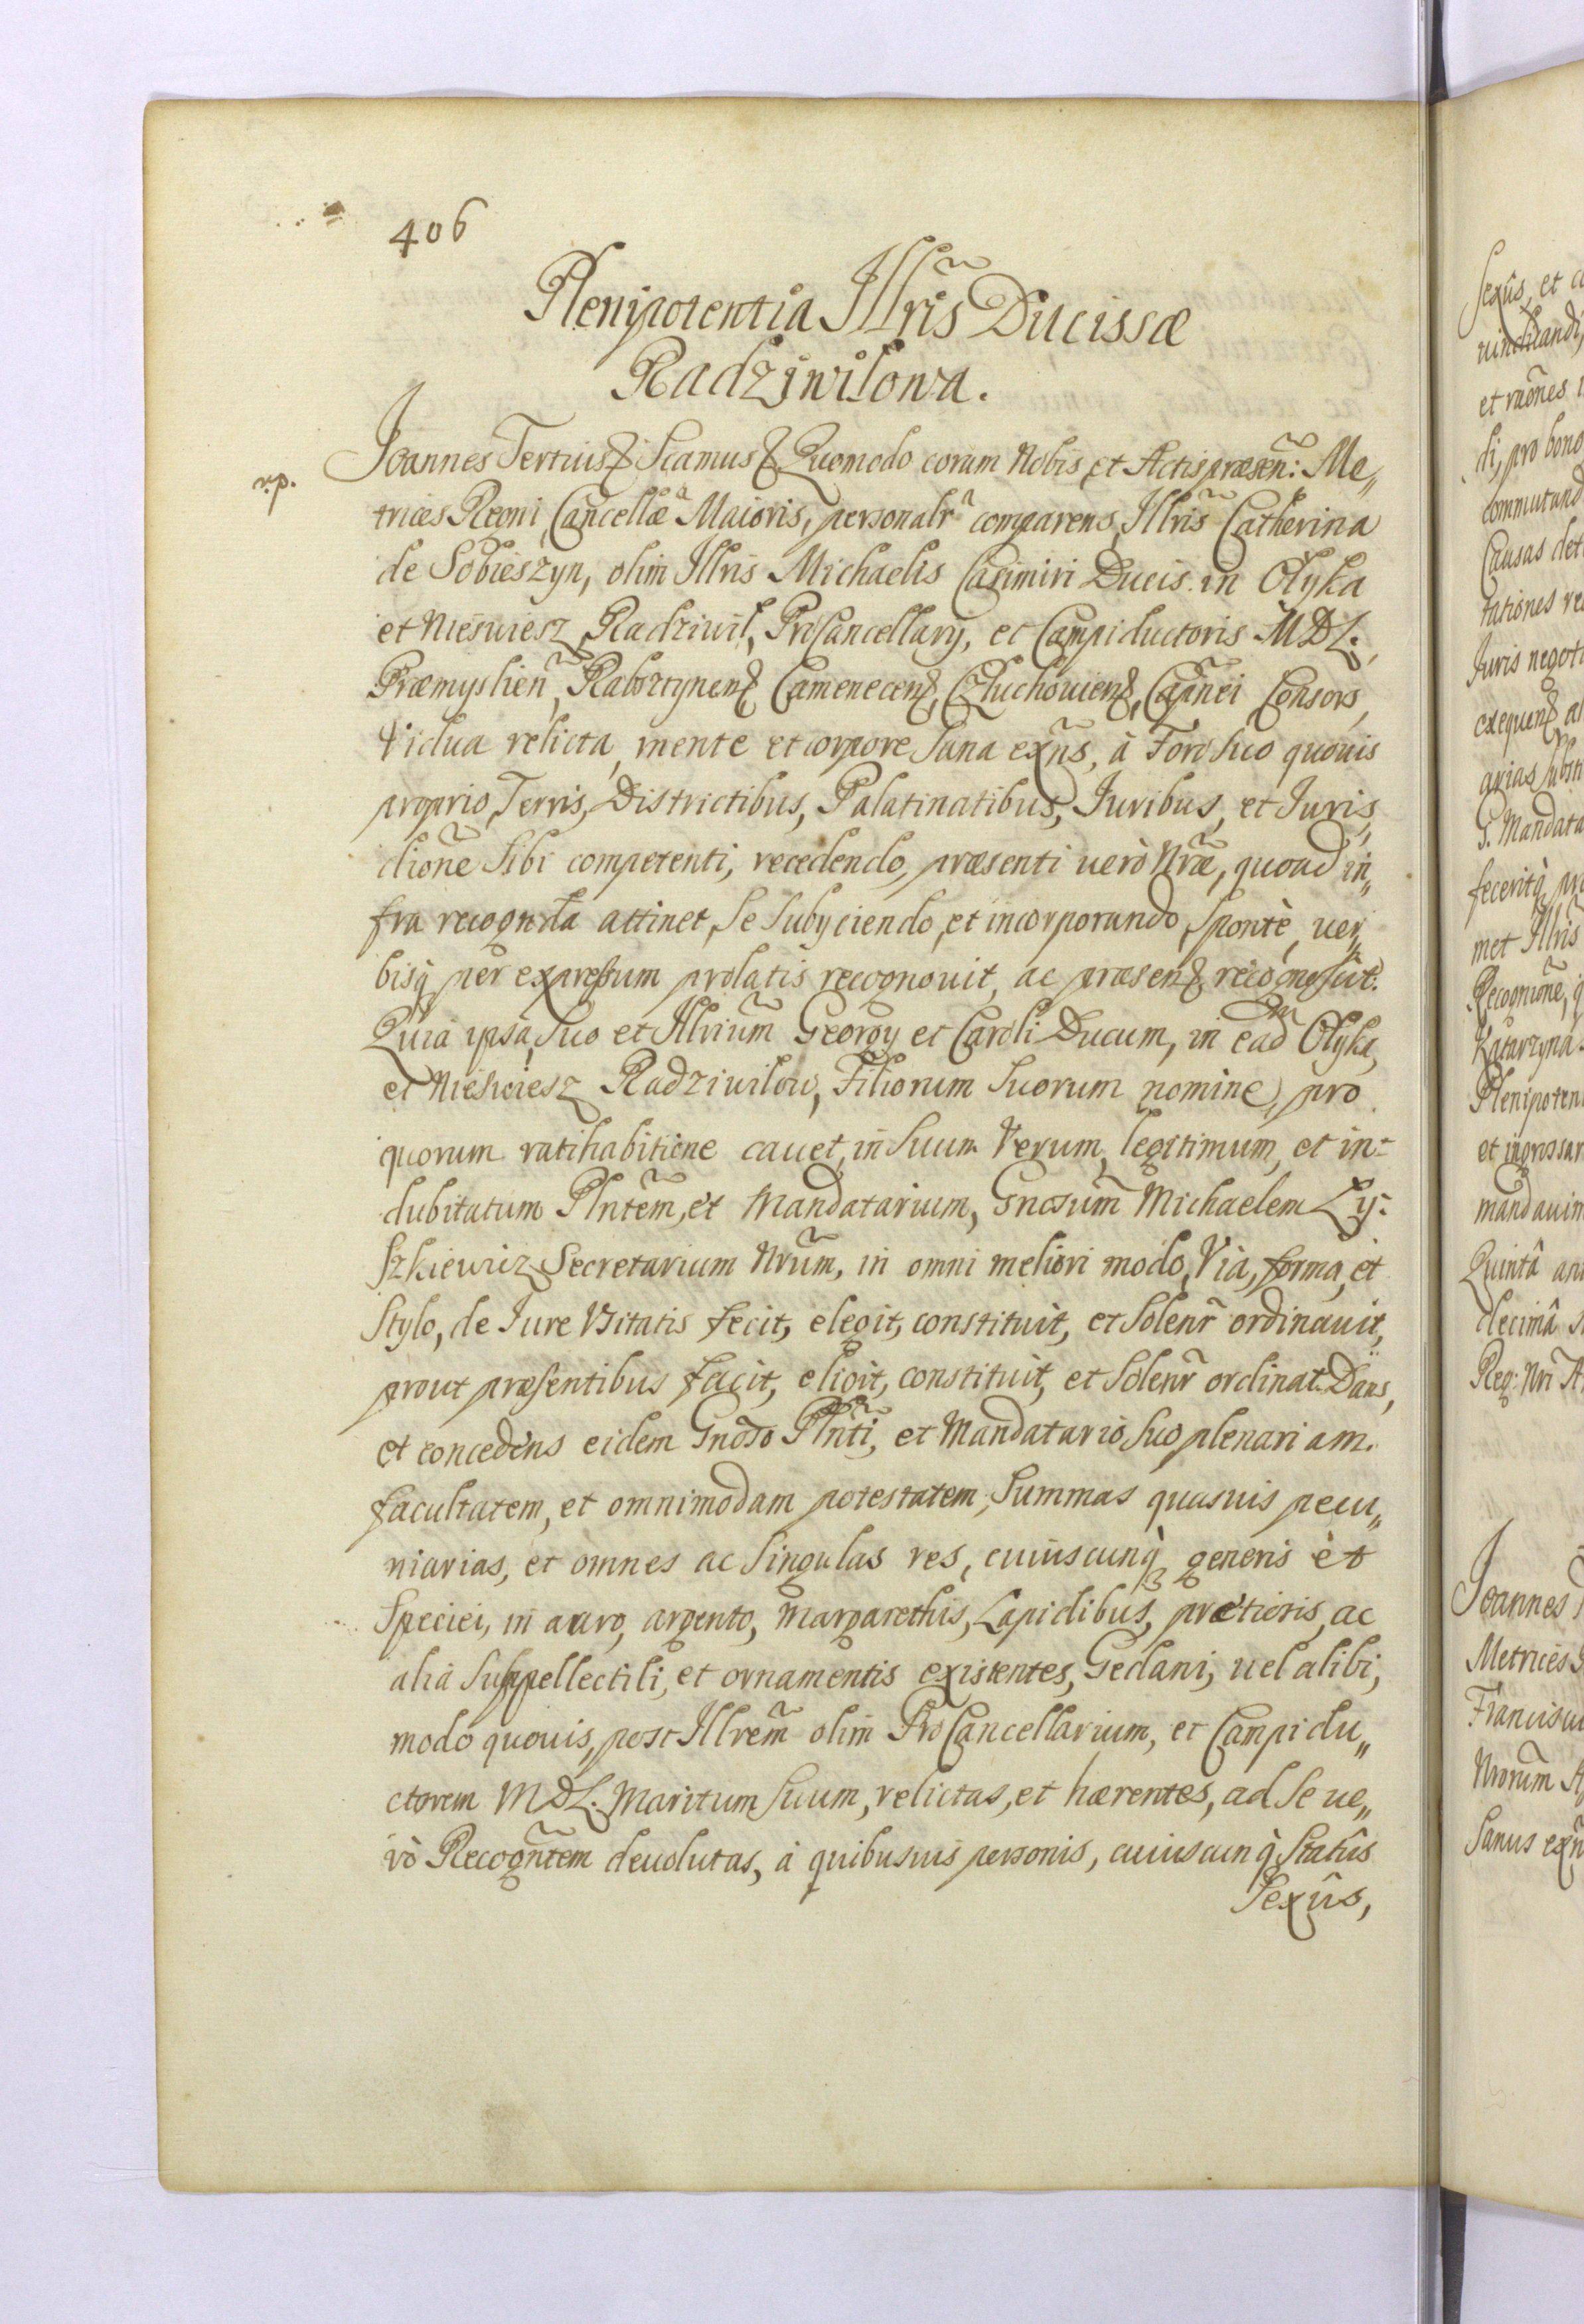 406
Plenipotentia Illr̃is Ducissæ
Radziwiłowa.
v.p.
Joannes Tertius & Sciamus & Quomodo coram Nobis et Actis præseñ: Me„
trices Regni Cancellæ Maioris, personalr̃ comparens Illr̃is Catherina
de Sobieszyn, olim Illris Michaelis Casimiri Ducis in Ołyka
et Nieświesz Radziwił, ProCancellarij, et Campiductoris MDL.,
Præmyslieñ, Rabsztynen̄ Camenecen̄, Człuchouien̄, Capñei Consors,
Vidua relicta, mente et corpore sana exñs, à Foro suo quouis
proprio, Terris, Districtibus, Palatinatibus, Iuribus, et Iuris„
dioñe sibi competenti, recedendo, præsenti uerò Nr̃æ, quoad in„
fra recognda attinet, se subijciendo, et incorporando, sponte, uer„
bisq́ per expressum prolatis recognouit, ac præsen̄ recognoscit:
Quia ipsa, suo et Illriũm Georgij et Caroli Ducum, in eadm Ołyka,
et Nieświesz Radziwiłow, Filiorum suorum nomine, pro
quorum ratihabitione cauet, in suum Verum, legitimum, et in-
dubitatum Plntẽm, et Mandatarium, Gnosũm Michaelem Ły-
szkiewicz Secretarium Nrũm, in omni meliori modo, Via, forma, et
stylo, de Iure Vsitatis fecit, elegit, constituit, et solenr̃ ordinauit,
prout præsentibus facit, eligit, constituit, et solenr̃ ordinat. Dans,
et concedens eidem Gnoso Plñti, et Mandatario suo plenariam
facultatem, et omnimodam potestatem, summas quasuis pecu„
niarias, et omnes ac singulas res, cuiuscunq́ generis et
speciei, in auro, argento, margarethis, Lapidibus, prætioris, ac
alia suppellectili, et ornamentis existentes, Gedani, uel alibi,
modo quouis, post Illrẽm olim ProCancellarium, et Campidu„
ctorem MDL. Maritum suum, relictas, et hærentes, ad se ue„
rò Recogñtem deuolutas, à quibusuis personis, cuiuscunq́ Statûs
Sexûs,
Sexûs, et
uindicandi,
et rãones
di, pro bono
commutand
Causas det
tationes re
Iuris negoti
exequen̄
arias subst
S. Mandata
feceritq́
met Illris
Recognoñe,
Katarzyna
Plenipoten
et ingrossar
mandauim
Quintâ
decimâ
Reg: Nri
Joannes
Metrices
Francisu
Nrorũm
sanus exñ